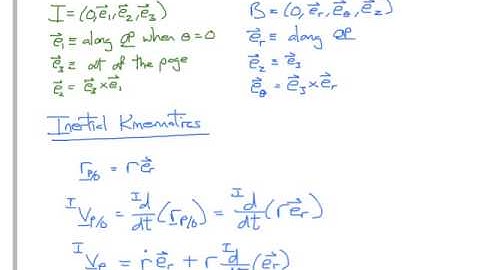 I = (0, e⃗₁, e⃗₂, e⃗₃)
e⃗₁ ≡ along OP when θ=0
e⃗₃ ≡ out of the page
e⃗₂ = e⃗₃ × e⃗₁
B = (0, e⃗r, e⃗θ, e⃗z)
e⃗r ≡ along OP
e⃗z ≡ e⃗₃
e⃗θ = e⃗₃ × e⃗r
Inertial Kinematics
r_P/O = r e⃗r
ᴵV_P/O = ᴵd/dt (r_P/O) = ᴵd/dt (r e⃗r)
ᴵV_P = ṙ e⃗r + r ᴵd/dt (e⃗r)